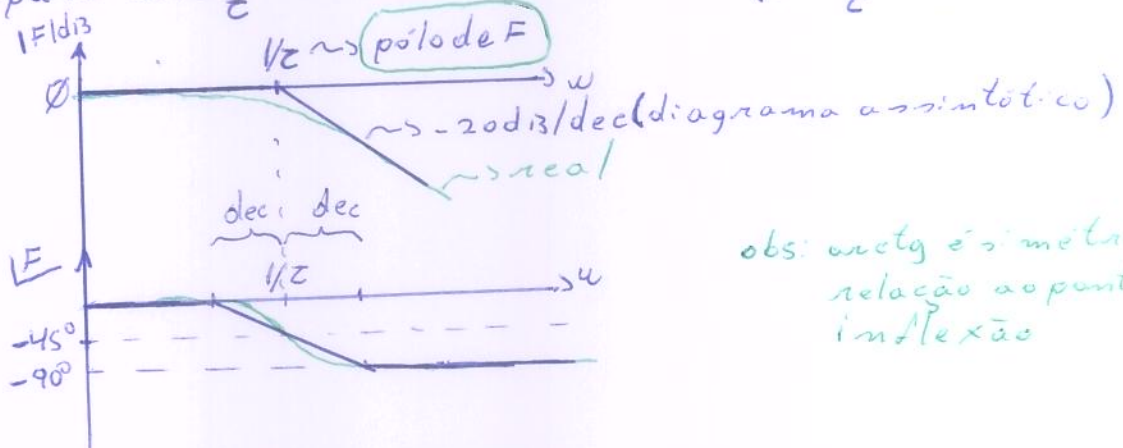 |F|dB
1/τ ~> pólo de F
Ø
ω
~> -20dB/dec (diagrama assintótico)
~> real
dec dec
∠F
1/τ
ω
-45°
-90°
obs: arctg é simétr
relação ao pont
inflexão